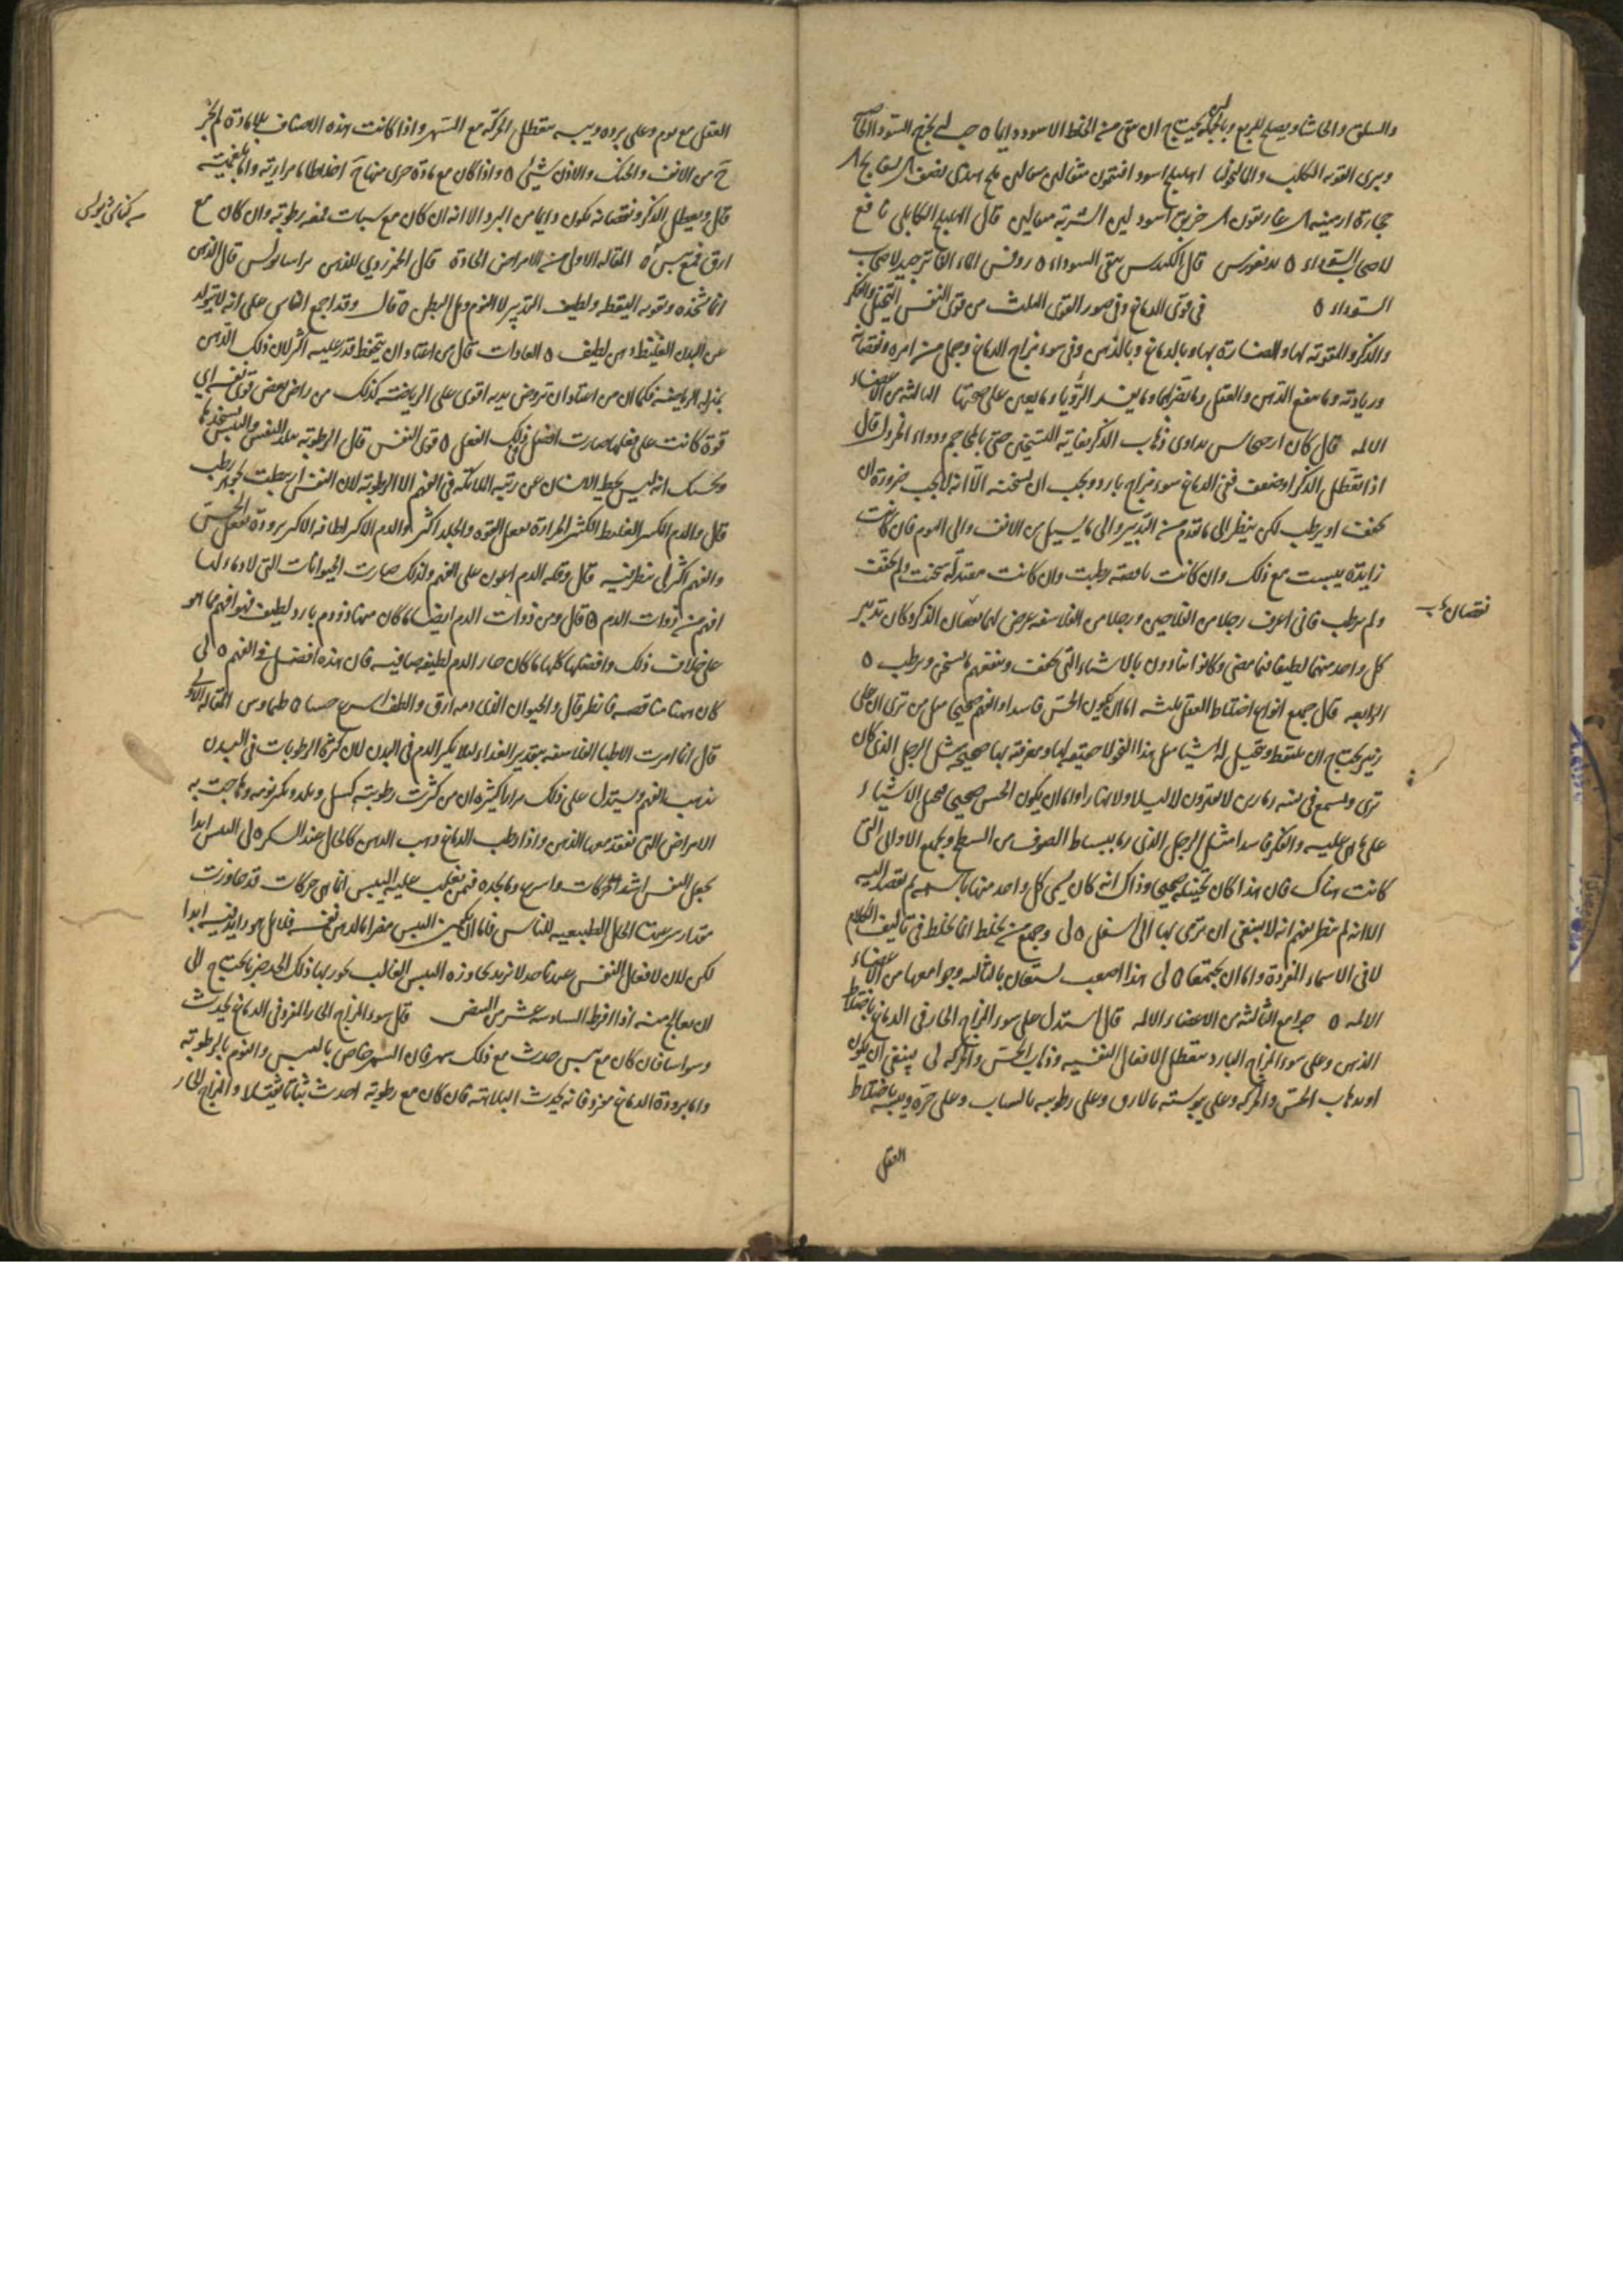 والسلق والحاشا ويصلح للربع وبالجملة يحتاج ان ينقى من الخلط الاسود دايما ٥ يخرج السودا
ويبرى القوبه الكلب والمالنخوليا اهليلج اسود افتيمون مثقالين ملح هندى نصف
حجارة ارمينيه غاريقون خربق اسود الشربة مثقالين قال الهليلج الكابلى نافع
لاصحاب السوداء ٥ قال الكندس ينقى السوداء ٥ روفس الماء الفاتر جيد لاصحاب
السوداء ٥ فى قوى الدماغ وفى صور القوى الثلث من قوى النفس التخيل والفكر
والذكر والمقوية لها والضارة بها وبالدماغ وبالذهن وفى سوء مزاج الدماغ وجمل من امره ونقصانه
وزيادته وما ينفع الذهن والعقل وما يضرهما وما يفسد الرؤيا وما يعين على صحتها الثالثة من الاعضاء
الالمه قال كان ارجيجانس يداوى ذهاب الذكر بغاية التسخين حتى بالمحاجم ودواء الخردل قال
اذا تعطل الذكر او ضعف ففى الدماغ سوء مزاج بارد ويجب ان يسخنه الا انه لا يجب ضرورة ان
يجفف او يرطب لكن ينظر الى ما تقدم من التدبير والى ما يسيل من الانف والى النوم فان كانت
زايدة يبست مع ذلك وان كانت ناقصة رطبت وان كانت معتدلة سخنت ولم تجفف
ولم ترطب فانى اعرف رجلا من الفلاحين ورجلا من الفلاسفه عرض لهما نقصان الذكر وكان تدبير
نقصان
كل واحد منهما لطيفا فيما مضى وكانوا يتاذون بالاشياء التى تجفف وينفعهم ما يسخن ويرطب ٥
الرابعه قال جميع انواع اختلاط العقل ثلثه اما ان يكون الحس فاسدا والفهم صحيحا مثل من ترى ان على
زئبر يحتاج ان يلتقط ويتخيل له اشيا مثل هذا النحو لا حقيقه لها ومعرفته بها صحيحه مثل الرجل الذى كان
يرى ويسمع فى بيته زمارين لا يفترون لا ليلا ولا نهارا واما ان يكون الحس صحيحا يحصل الاشياء
على ما هى عليه والفكر فاسدا مثل الرجل الذى رمى ببساط الصوف من السطح وبجميع الاوانى التى
كانت هناك فان هذا كان تخيله صحيحا وذاك انه كان يسمى كل واحد منها باسمه لم يقصد اليه
الا انه لم ينظر بفهم انه لا ينبغى ان يرمى بها الى اسفل ٥ لى وجميع من يخلط انما يخلط فى تاليف الكلام
لا فى الاسماء المفردة واما ان يجتمعا ٥ لى هذا اصعب يستعان بالثالثه وجوامعها من الاعضاء
الالمه ٥ جوامع الثالثة من الاعضاء الالمه قال استدل على سوء المزاج الحار فى الدماغ باختلاط
الذهن وعلى سوء المزاج البارد بتعطل الافعال النفسيه وذهاب الحس والحركه لى ينبغى ان يكون
او بذهاب الحس والحركه وعلى يبوسته بالارق وعلى رطوبته بالسبات وعلى حره ويبسه باختلاط
العقل
العقل مع نوم وعلى برده ويبسه بتعطل الحركة مع السهر واذا كانت هذه الاصناف بلا مادة لم يخرج
من الانف والحنك والاذن شيئ ٥ واذا كان مع مادة جرى منها اخلاط اما مرارية واما بلغميه
قال وتعطل الذكر ونقصانه يكون دايما من البرد الا انه ان كان مع سبات فمعه رطوبة وان كان مع
ارق فمع يبس ٥ المقاله الاولى من الامراض الحادة قال الخمر ردى للذهن قال الذهن
انما تشحذه وتقويه اليقظه ولطيف التدبير لا النوم وملى البطن ٥ قال وقد اجمع الناس على انه لا يتولد
عن البدن الغليظ ذهن لطيف ٥ العادات قال من اعتاد ان يتحفظ قدر عليه اكثر لان ذلك للذهن
بمنزله الرياضه فكما ان من اعتاد ان يروض بدنه اقوى على الرياضه كذلك من راض بعض قوى نفسه اى
قوة كانت على فعلها صارت افضل فى ذلك الفعل ٥ قوى النفس قال الرطوبة تبلد النفس واليبس يشحذها
وحسبك انه ليس يحط الانسان عن رتبه الملائكه فى الفهم الا الرطوبة لان النفس اربطت بجوهر رطب
قال والدم الكثير الغليظ الكثير الحرارة يفعل القوه والجلد اكثر والدم الاكثر لطافه الاكثر برودة يفعل الحس
والفهم اكثر لى ينظر فيه قال ورقه الدم اعون على الفهم ولذلك صارت الحيوانات التى لا دماء لها
افهم من ذوات الدم ٥ قال ومن ذوات الدم ايضا ما كان منها ذو دم بارد لطيف فهو افهم مما هو
على خلاف ذلك وافضلها كلها ما كان حار الدم لطيفه صافيه فان هذه افضل فى الفهم ٥ لى
كان ههنا مناقضه فانظر قال والحيوان الذى دمه ارق والطف اسرع حسا ٥ طيماوس المقاله الاولى
قال انما امرت الاطبا الفلاسفه بتقدير الغذاء لئلا يكثر الدم فى البدن لان كثرة الرطوبات فى البدن
تذهب الفهم ويستدل على ذلك مرارا كثيره ان من كثرت رطوبته كسل وبلد وكثر نومه وهاجت به
الامراض التى يفقد معها الذهن واذا رطب الدماغ ذهب الذهن كالحال عند السكر ٥ لى اليبس ابدا
يجعل النفس اشد الحركات واسرع وما يجده فيمن يغلب عليه اليبس انما هى حركات قد جاوزت
مقدار سرعتها الحال الطبيعيه للناس فاما ان يكون اليبس مضرا بالذهن نفسه فلا بل هو زايد فيه ابدا
لكن لان لافعال النفس عندنا حد لا نريد مجاوزه اليبس الغالب يجوز بها ذلك الحد ما يحتاج الى
ان يعالج منه اذا افرط السادسه عشر من النبض قال سوء المزاج الحار المفرد فى الدماغ يحدث
وسواسا فان كان مع يبس حدث مع ذلك سهر فان السهر خاص باليبس والنوم بالرطوبة
واما برودة الدماغ مفردة فانه يحدث البلاهة فان كان مع رطوبة احدث سباتا ثقيلا والمزاج الحار